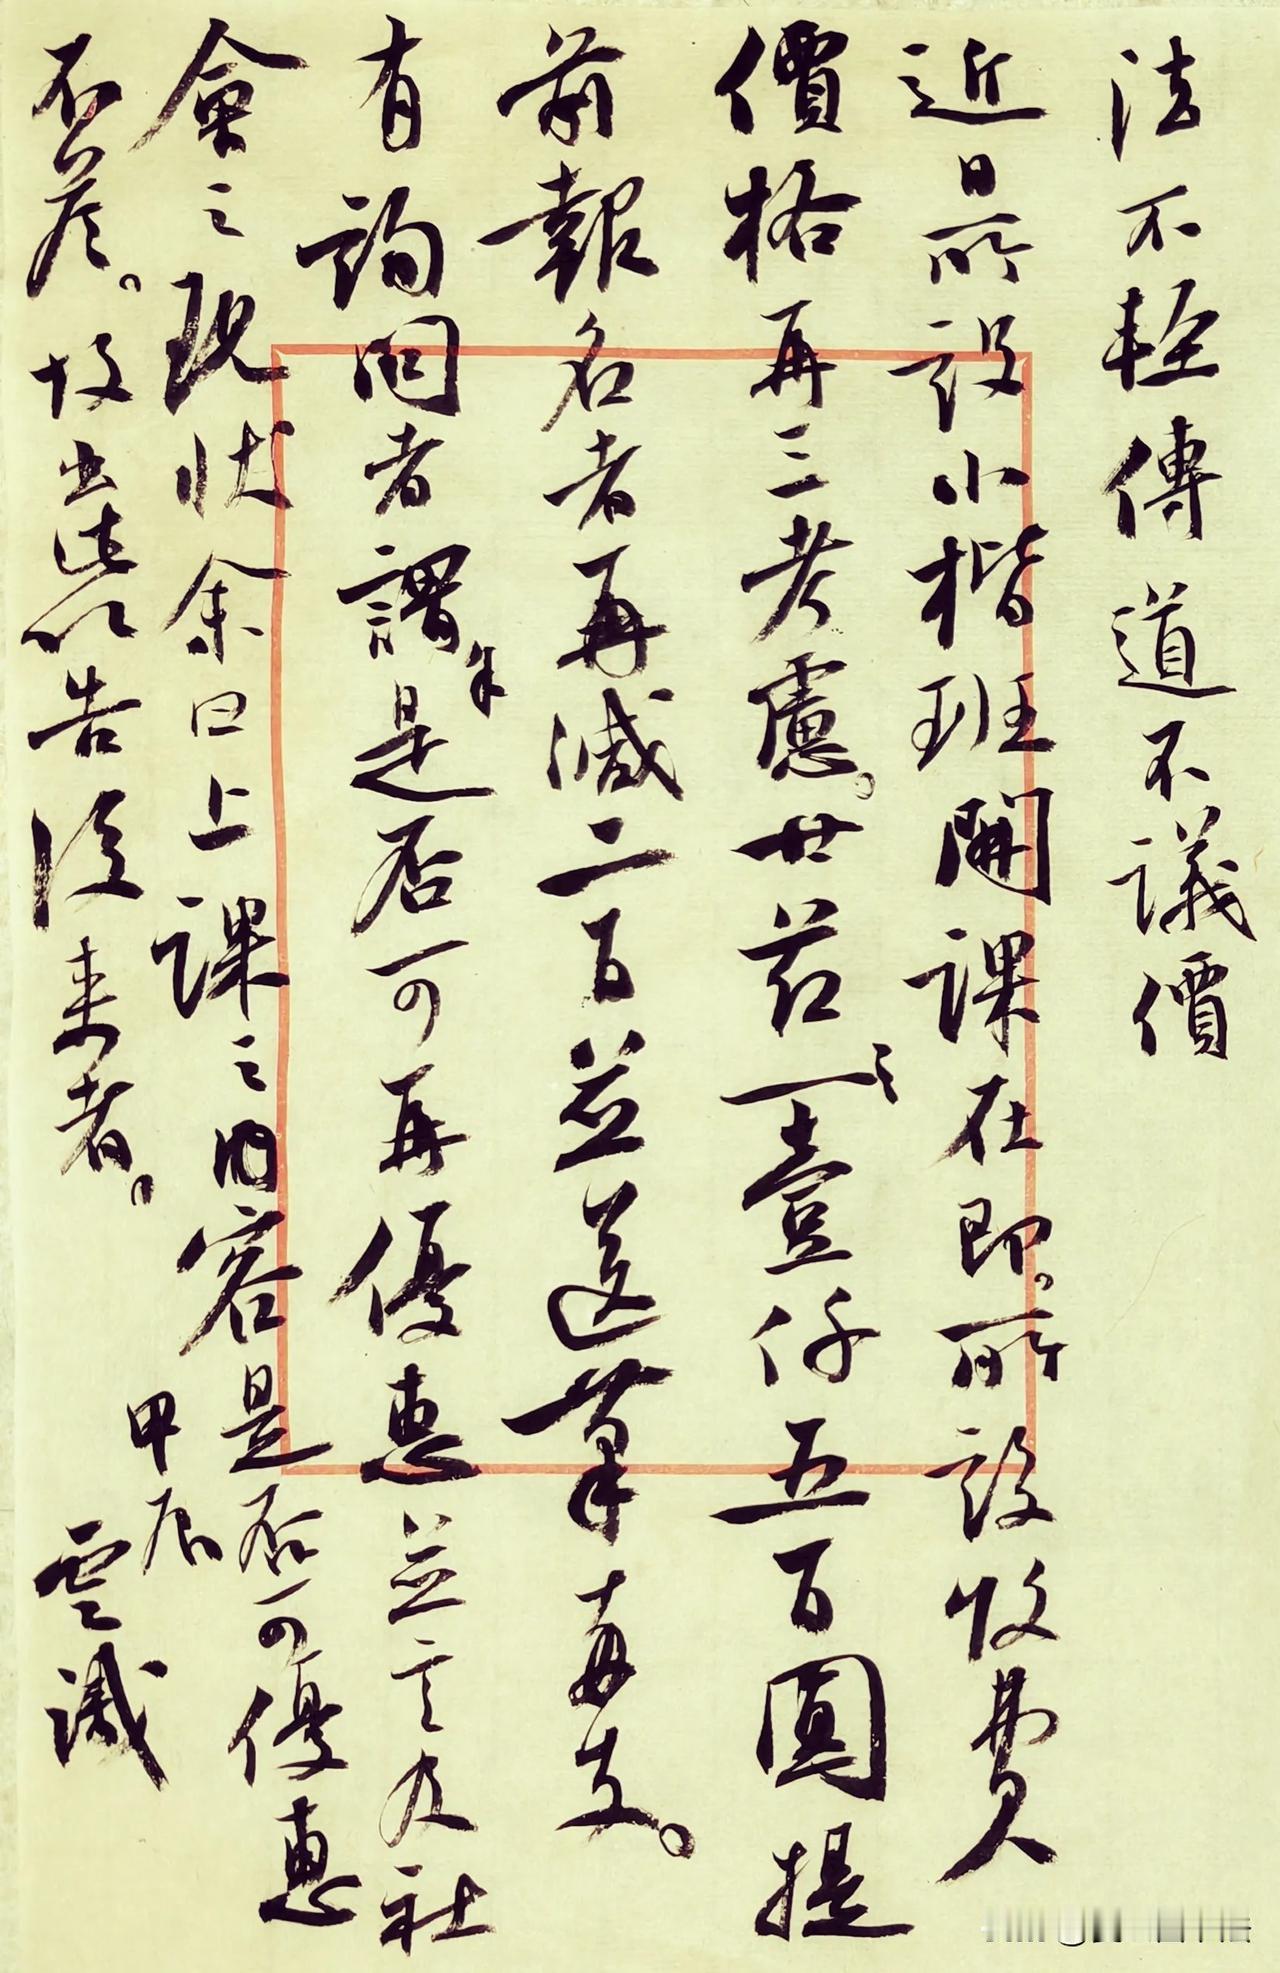 法不輕傳道不議價
近日所設小楷班開課在即。所設收費
價格再三考慮。廿節之壹仟五百圓提
前報名者再減二百並送筆兩支。
有詢問者謂余是否可再優惠並言及社
會之現狀余曰上課之內容是否可優惠
不答。故書此以告後來者。
甲辰
雲識